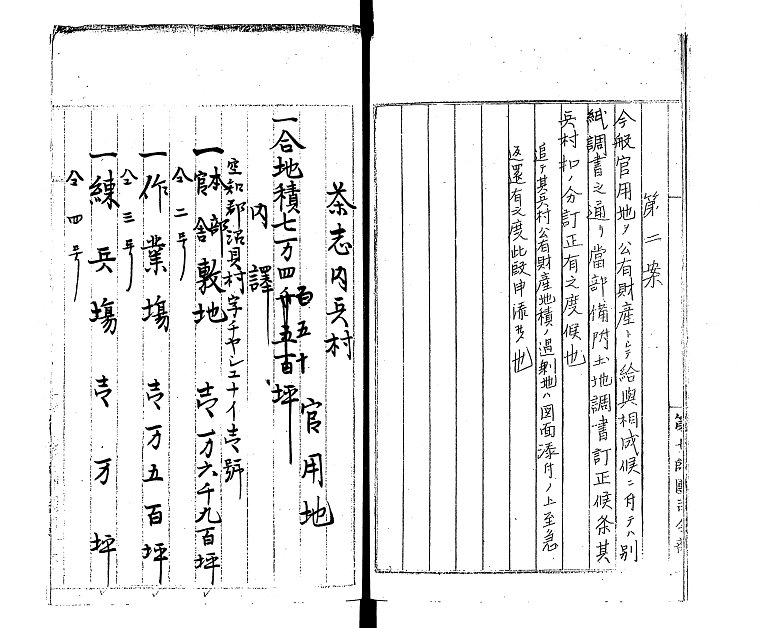 第二案
今般官用地ヲ公有財産トシテ給與相成候ニ付テハ別
紙調書之通リ當部備附土地調書訂正候条其
兵村扣ノ分訂正有之度候也
追テ其兵村公有財産地積ノ過剰地ハ図面添付ノ上至急
返還有之度此段申添候也
第十師團司令部
茶志内兵村
官用地
一合地積七万四千五百坪
百五十
内譯
空知郡沼貝村字チヤシュナイ壱號
一本部官舎敷地 壱万六千九百坪
仝二号
一作業場 壱万五百坪
仝三号
一練兵場 壱万坪
仝四号